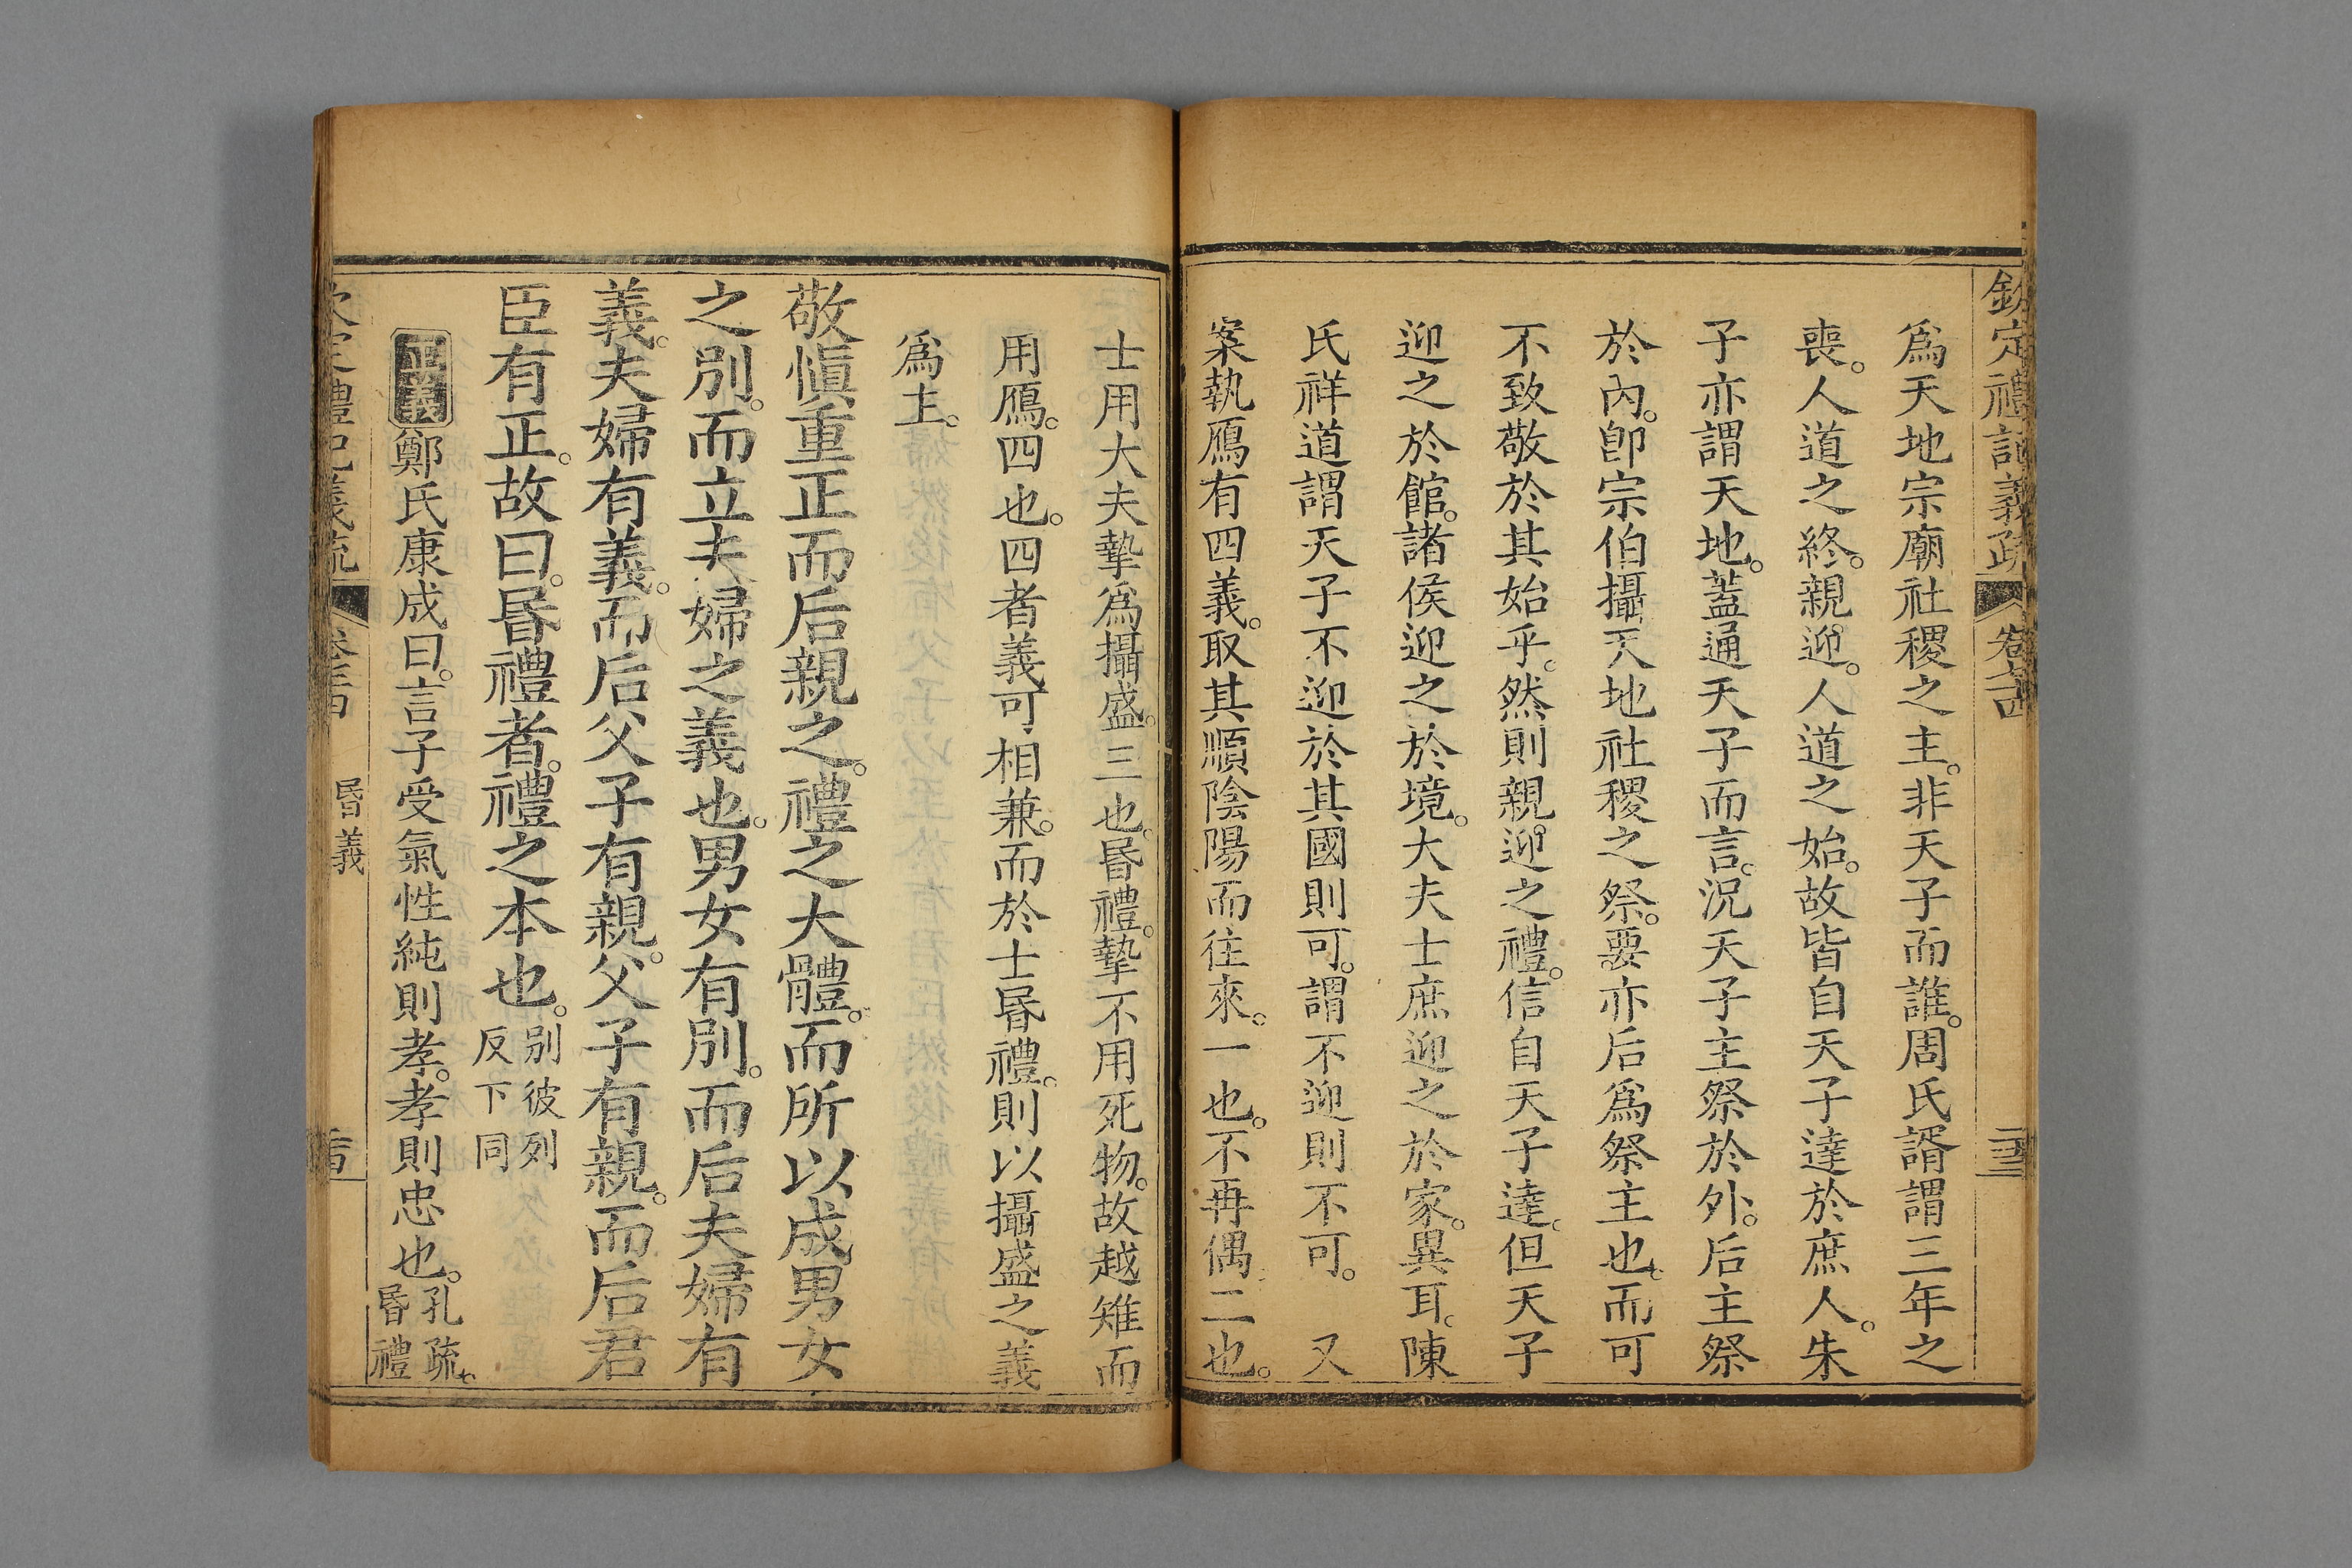 欽定禮記義疏 卷七十四
爲天地宗廟社稷之主。非天子而誰。周氏諝謂三年之
喪。人道之終。親迎。人道之始。故皆自天子達於庶人。朱
子亦謂天地。蓋通天子而言。況天子主祭於外。后主祭
於內。卽宗伯攝天地社稷之祭。要亦后爲祭主也。而可
不致敬於其始乎。然則親迎之禮。信自天子達。但天子
迎之於館。諸侯迎之於境。大夫士庶迎之於家。異耳。陳
氏祥道謂天子不迎於其國則可。謂不迎則不可。 又
案執鴈有四義。取其順陰陽而往來。一也。不再偶二也。
士用大夫摯爲攝盛。三也。昬禮。摯不用死物。故越雉而
用鴈。四也。四者義可相兼。而於士昬禮。則以攝盛之義
爲主。
敬愼重正而后親之。禮之大體。而所以成男女
之別。而立夫婦之義也。男女有別。而后夫婦有
義。夫婦有義。而后父子有親。父子有親。而后君
臣有正。故曰。昬禮者。禮之本也。別彼列
反下同。
正義鄭氏康成曰。言子受氣性純則孝。孝則忠也。孔疏。
昬禮
禮記義疏 昬義